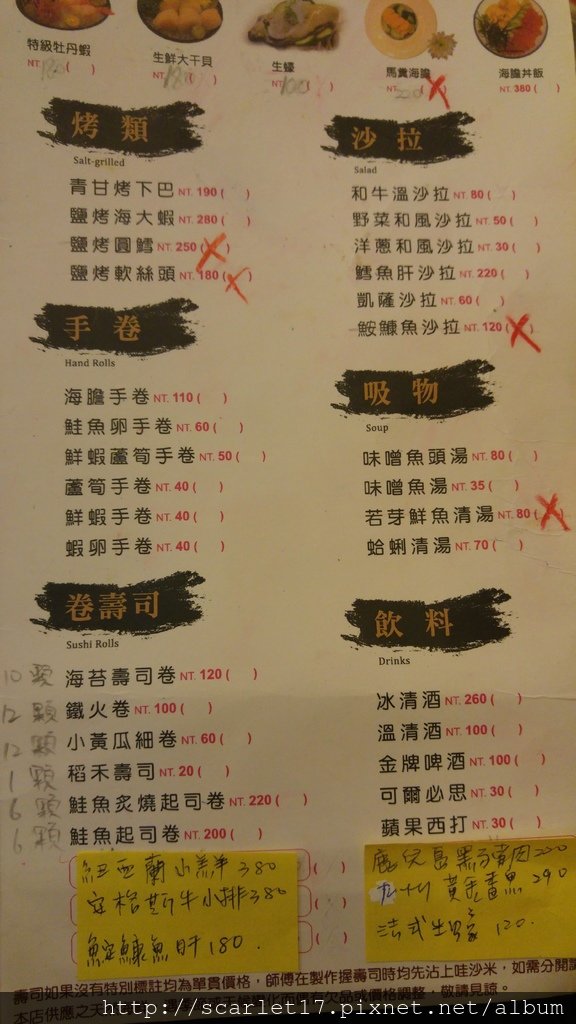 特級牡丹蝦
NT.
生鮮大干貝
NT.
生蠔
NT.
馬糞海膽
NT. 220 ( )
海膽丼飯
NT. 380 ( )
烤類
Salt-grilled
青甘烤下巴 NT. 190 ( )
鹽烤海大蝦 NT. 280 ( )
鹽烤圓鱈 NT. 250 ( )
鹽烤軟絲頭 NT. 180 ( )
手卷
Hand Rolls
海膽手卷 NT. 110 ( )
鮭魚卵手卷 NT. 60 ( )
鮮蝦蘆筍手卷 NT. 50 ( )
蘆筍手卷 NT. 40 ( )
鮮蝦手卷 NT. 40 ( )
蝦卵手卷 NT. 40 ( )
卷壽司
Sushi Rolls
10顆 海苔壽司卷 NT. 120 ( )
12顆 鐵火卷 NT. 100 ( )
12顆 小黃瓜細卷 NT. 60 ( )
1顆 稻禾壽司 NT. 20 ( )
6顆 鮭魚炙燒起司卷 NT. 220 ( )
6顆 鮭魚起司卷 NT. 200 ( )
紐西蘭小羔羊 380
安格斯牛小排 380
鮟鱇魚肝 180.
沙拉
Salad
和牛溫沙拉 NT. 80 ( )
野菜和風沙拉 NT. 50 ( )
洋蔥和風沙拉 NT. 30 ( )
鱈魚肝沙拉 NT. 220 ( )
凱薩沙拉 NT. 60 ( )
鮟鱇魚沙拉 NT. 120 ( )
吸物
Soup
味噌魚頭湯 NT. 80 ( )
味噌魚湯 NT. 35 ( )
若芽鮮魚清湯 NT. 80 ( )
蛤蜊清湯 NT. 70 ( )
飲料
Drinks
冰清酒 NT. 260 ( )
溫清酒 NT. 100 ( )
金牌啤酒 NT. 100 ( )
可爾必思 NT. 30 ( )
蘋果西打 NT. 30 ( )
鹿兒島黑豚肉 220
黃金 290
法式生蠔 120.
壽司如果沒有特別標註均為單貫價格，師傅在製作握壽司時均先沾上哇沙米，如需分開請
本店供應之天 欠品或價格調整，敬請見諒。
http://scarlet17.pixnet.net/album